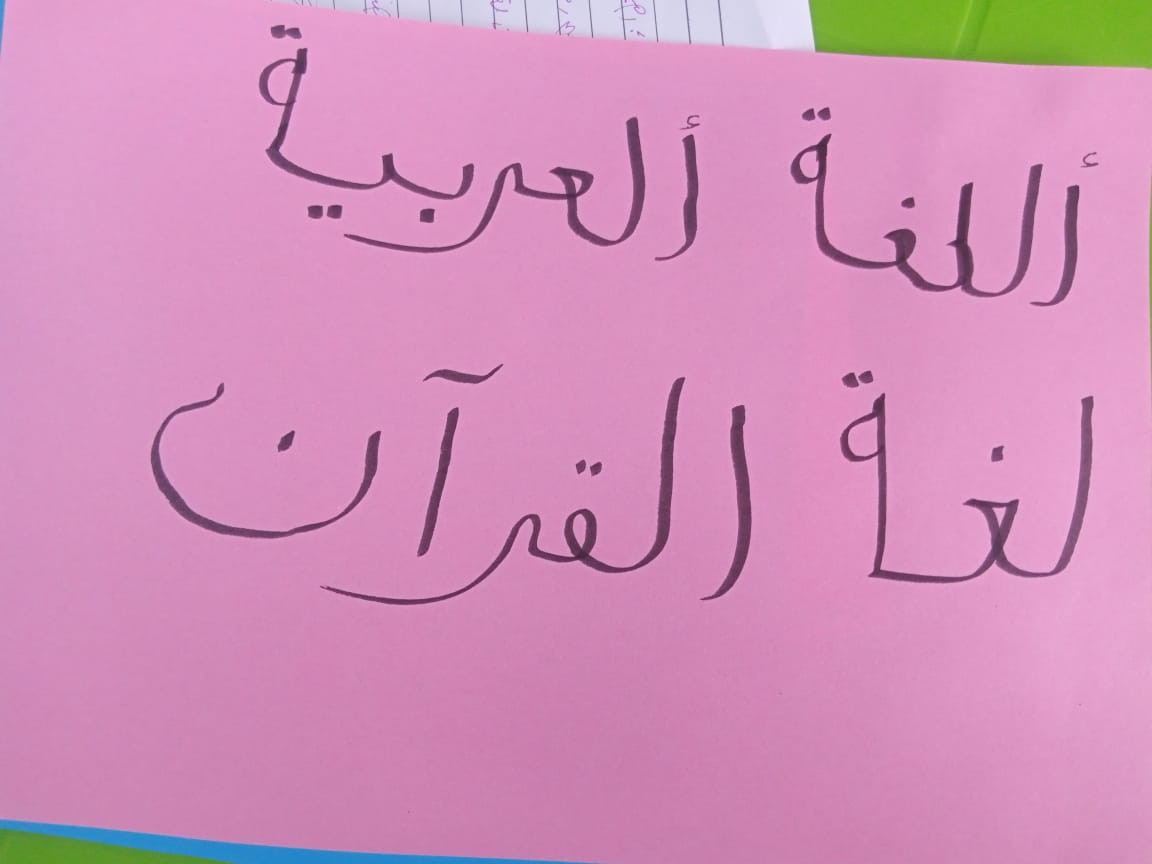 أللغة ألعربية
لغة القرآن